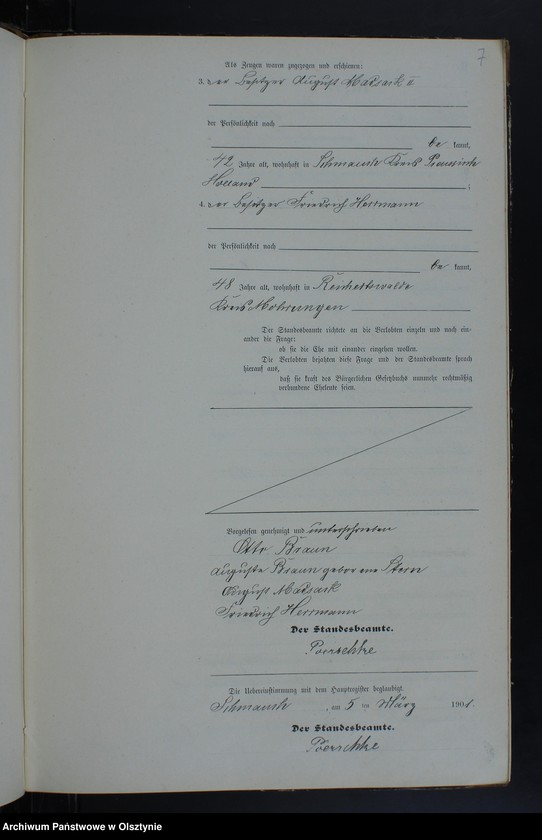 7
Als Zeugen waren zugezogen und erschienen:
3. der Besitzer August Matsark II
der Persönlichkeit nach
be kannt,
42 Jahre alt, wohnhaft in Schmauch Kreis Preussisch
Holland ;
4. der Besitzer Friedrich Herrmann
der Persönlichkeit nach
be kannt,
48 Jahre alt, wohnhaft in Reichertswalde
Kreis Mohrungen
Der Standesbeamte richtete an die Verlobten einzeln und nach ein-
ander die Frage:
ob sie die Ehe mit einander eingehen wollen.
Die Verlobten bejahten diese Frage und der Standesbeamte sprach
hierauf aus,
daß sie kraft des Bürgerlichen Gesetzbuchs nunmehr rechtmäßig
verbundene Eheleute seien.
Vorgelesen genehmigt und unterschrieben
Otto Braun
Auguste Braun geborene Stern
August Matsark
Friedrich Herrmann
Der Standesbeamte.
Poerschke
Die Uebereinstimmung mit dem Hauptregister beglaubigt.
Schmauch , am 5 ten März 190
Der Standesbeamte.
Poerschke
Archiwum Państwowe w Olsztynie